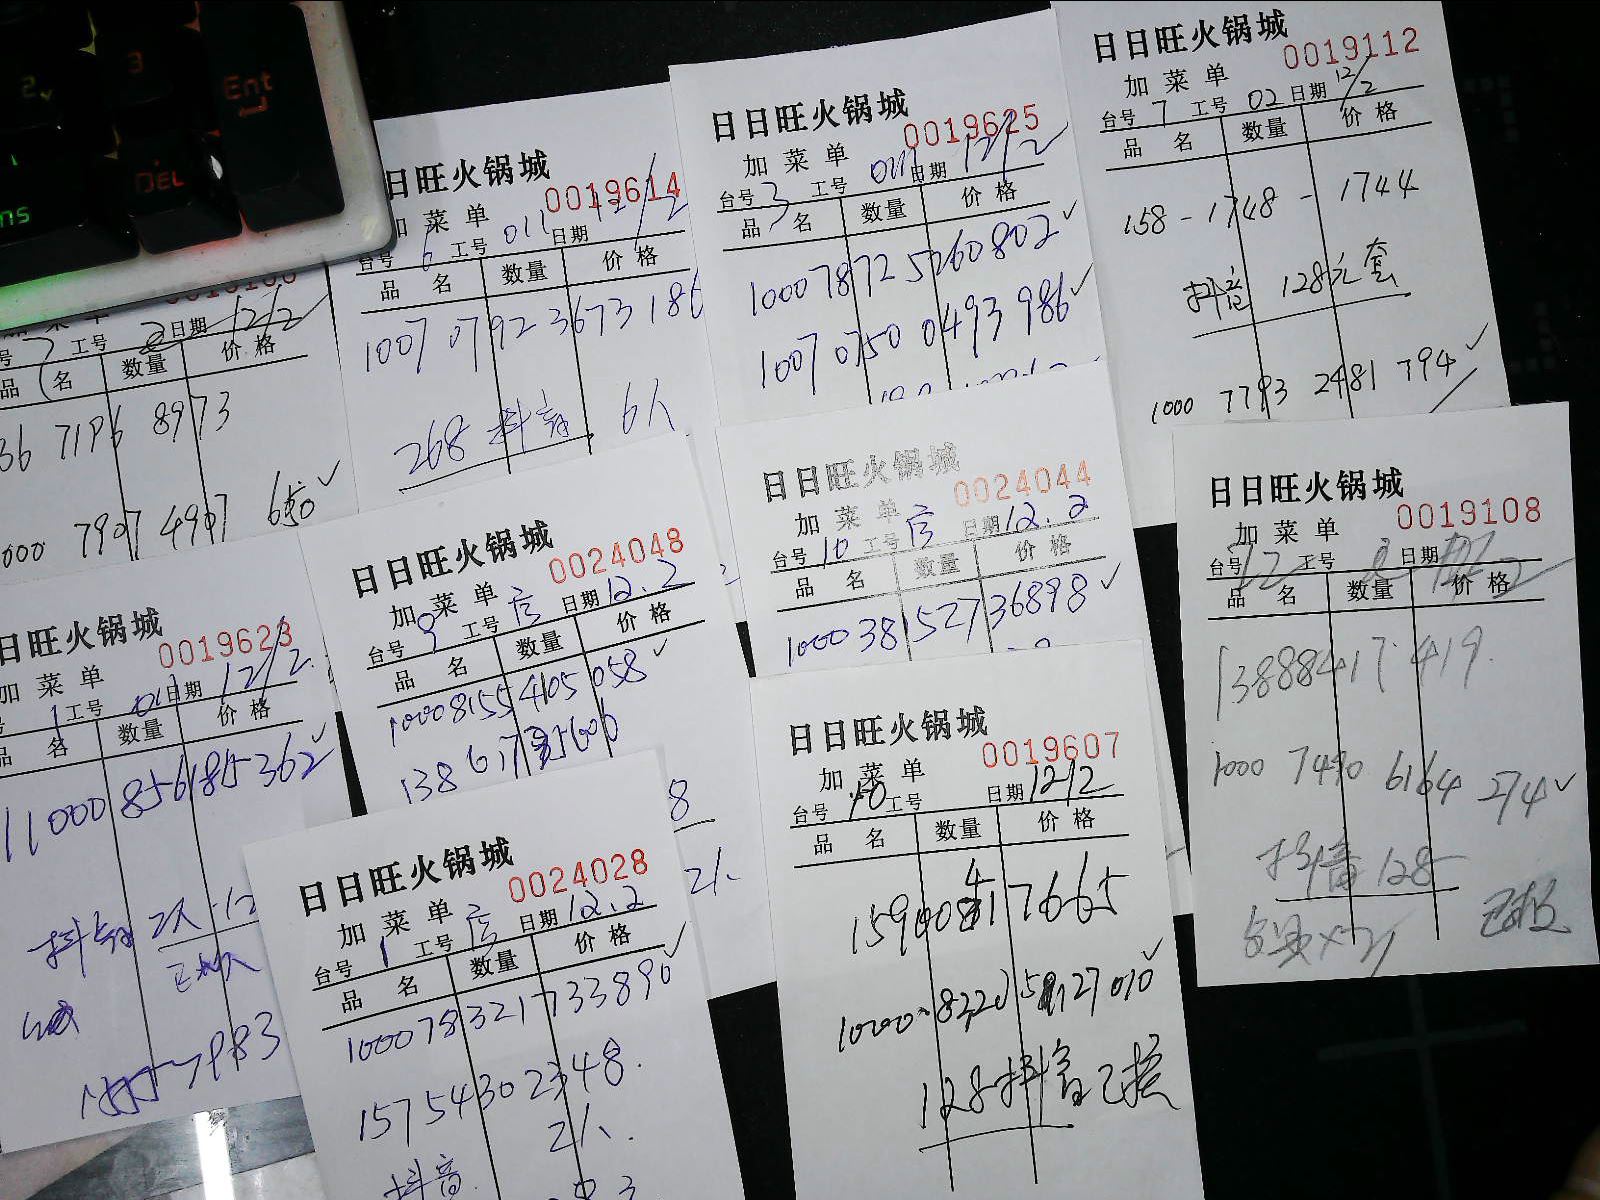 Ent
DEL
3
2
日旺火锅城
0019614
菜单
台号 6 工号 011 日期 12/2
品 名 数量 价格
1007 0792 3673 186
268 抖音 6人
日日旺火锅城
0019625
加菜单
台号 3 工号 011 日期 12/2
品 名 数量 价格
1000 7872 5260802✓
1007 0750 0493 986✓
日日旺火锅城
0019112
加菜单
台号 7 工号 02 日期 12/2
品 名 数量 价格
158-1748-1744
抖音 128元套
1000 7793 2481 794✓
工号 日期 12/2
品 名 数量 价格
36 7196 8973
000 7907 4997 650✓
日日旺火锅城
0024048
加菜单
台号 9 工号 日期 12.2
品 名 数量 价格
10008155 4105 058✓
138 617
8
21.
日日旺火锅城
0024044
加菜单
台号 10 工号 日期 12.2
品 名 数量 价格
100038152736898✓
日日旺火锅城
0019108
加菜单
台号 12 工号 日期
品 名 数量 价格
13888417419.
1000 7490 6164 274✓
抖音 128
日日旺火锅城
0019623
加菜单
号 1 工号 011 日期 12/2.
品 名 数量 价格
11000856185362✓
2人
983
日日旺火锅城
0024028
加菜单
台号 1 工号 日期 12.2
品 名 数量 价格
100078321733890✓
15754302348.
2人.
抖音.
日日旺火锅城
0019607
加菜单
台号 10 工号 日期 12/2
品 名 数量 价格
7665
128抖音已核